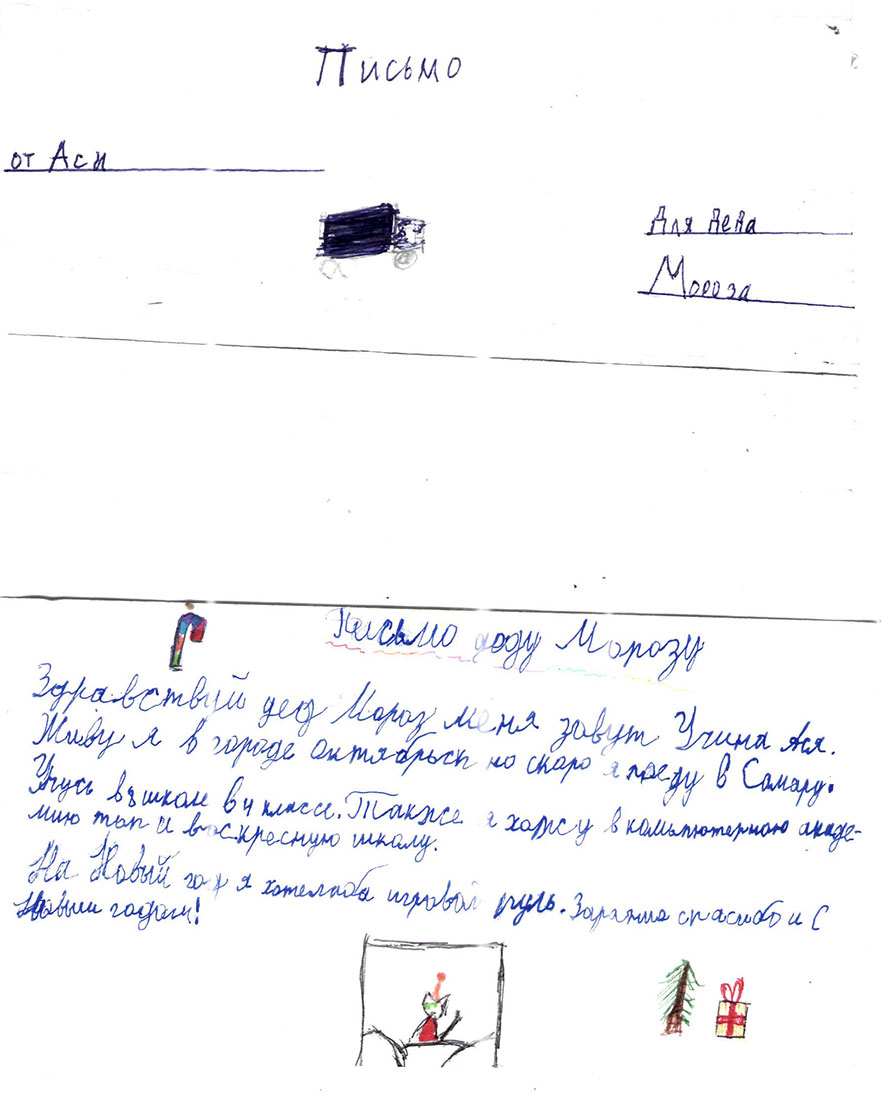 Письмо
от Аси
Для Деда
Мороза
Письмо деду Морозу
Здравствуй дед Мороз меня зовут Учина Ася.
Живу я в городе октябрьск но скоро я преду в Самару.
Учусь в 8 школе в 4 классе. Также я хожу в компьютерною акаде-
мию топ и воскресную школу.
На Новый год я хотела ба игровой руль. Заранние спасибо и С
Новым годам!